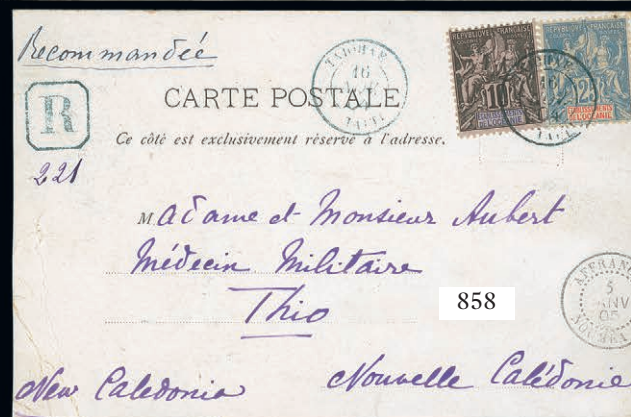 Recommandée
R
221
CARTE POSTALE
Ce côté est exclusivement réservé à l'adresse.
TAIOHAE
16
TAITI
RÉPUBLIQUE FRANÇAISE
10
RÉPUBLIQUE FRANÇAISE
25
DE L'OCÉANIE
16
Madame et Monsieur Aubert
Médecin Militaire
Thio
858
5
JANV
05
NOUMEA
New Caledonia
Nouvelle Calédonie